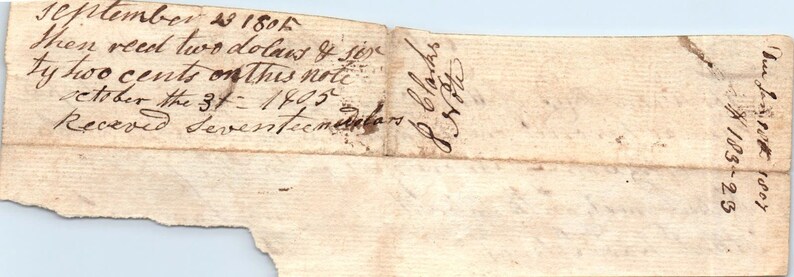 September 23 1805
then recd two dolars & six
ty two cents on this note
october the 31st 1805
Received Seventeen dolars
J Clarks
Note
Due Jan 1807
183-23